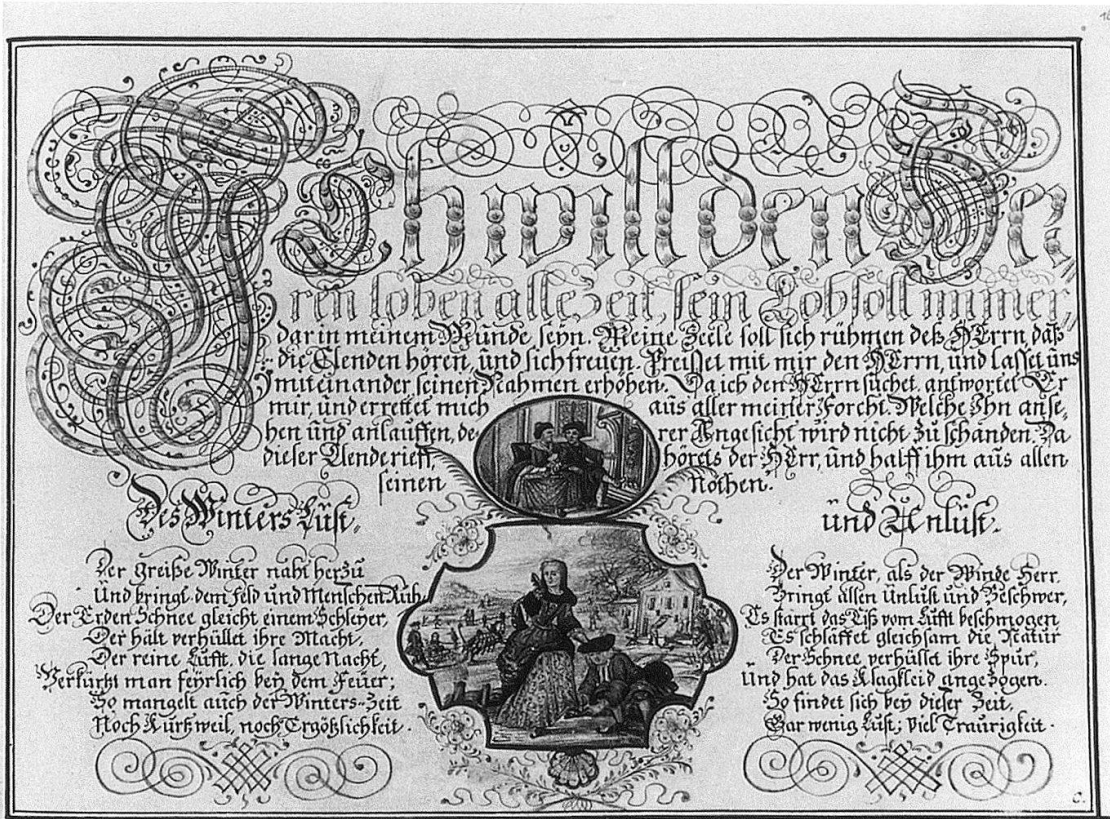 Ich will den Her„
ren loben alle Zeit, sein Lob soll immer„
dar in meinem Munde seyn. Meine Seele soll sich rühmen deß HErrn, daß
die Elenden hören, und sich freuen. Preisset mit mir den HErrn, und lasset uns
mit einander seinen Nahmen erhöhen. Da ich den HErrn suchet, antwortet Er
mir, und errettet mich aus aller meiner Forcht. Welche Ihn anse„
hen und anlauffen, derer Angesicht wird nicht zu schanden. Da
dieser Elende rieff, hörets der HErr, und halff ihm aus allen
seinen Nöthen.
Des Winters Lust„
Der greiße Winter naht herzu
Und bringt dem Feld und Menschen Ruh,
Der Erden Schnee gleicht einem Schleyer,
Der hält verhüllet ihre Macht.
Der reine Lufft, die lange Nacht,
Verkürtzt man feyrlich bey dem Feuer;
So mangelt auch der Winters-Zeit
Noch Kurtzweil, noch Ergötzlichkeit.
und Unlust.
Der Winter, als der Winde Herr,
Bringt allen Unlust und Beschwer,
Es starrt das Eiß vom Lufft beschmogen
Es schlaffet gleichsam die Natur
Der Schnee verhüllet ihre Spur,
Und hat das Klagkleid angezogen.
So findet sich bey dieser Zeit,
Gar wenig Lust; viel Traurigkeit.
C.